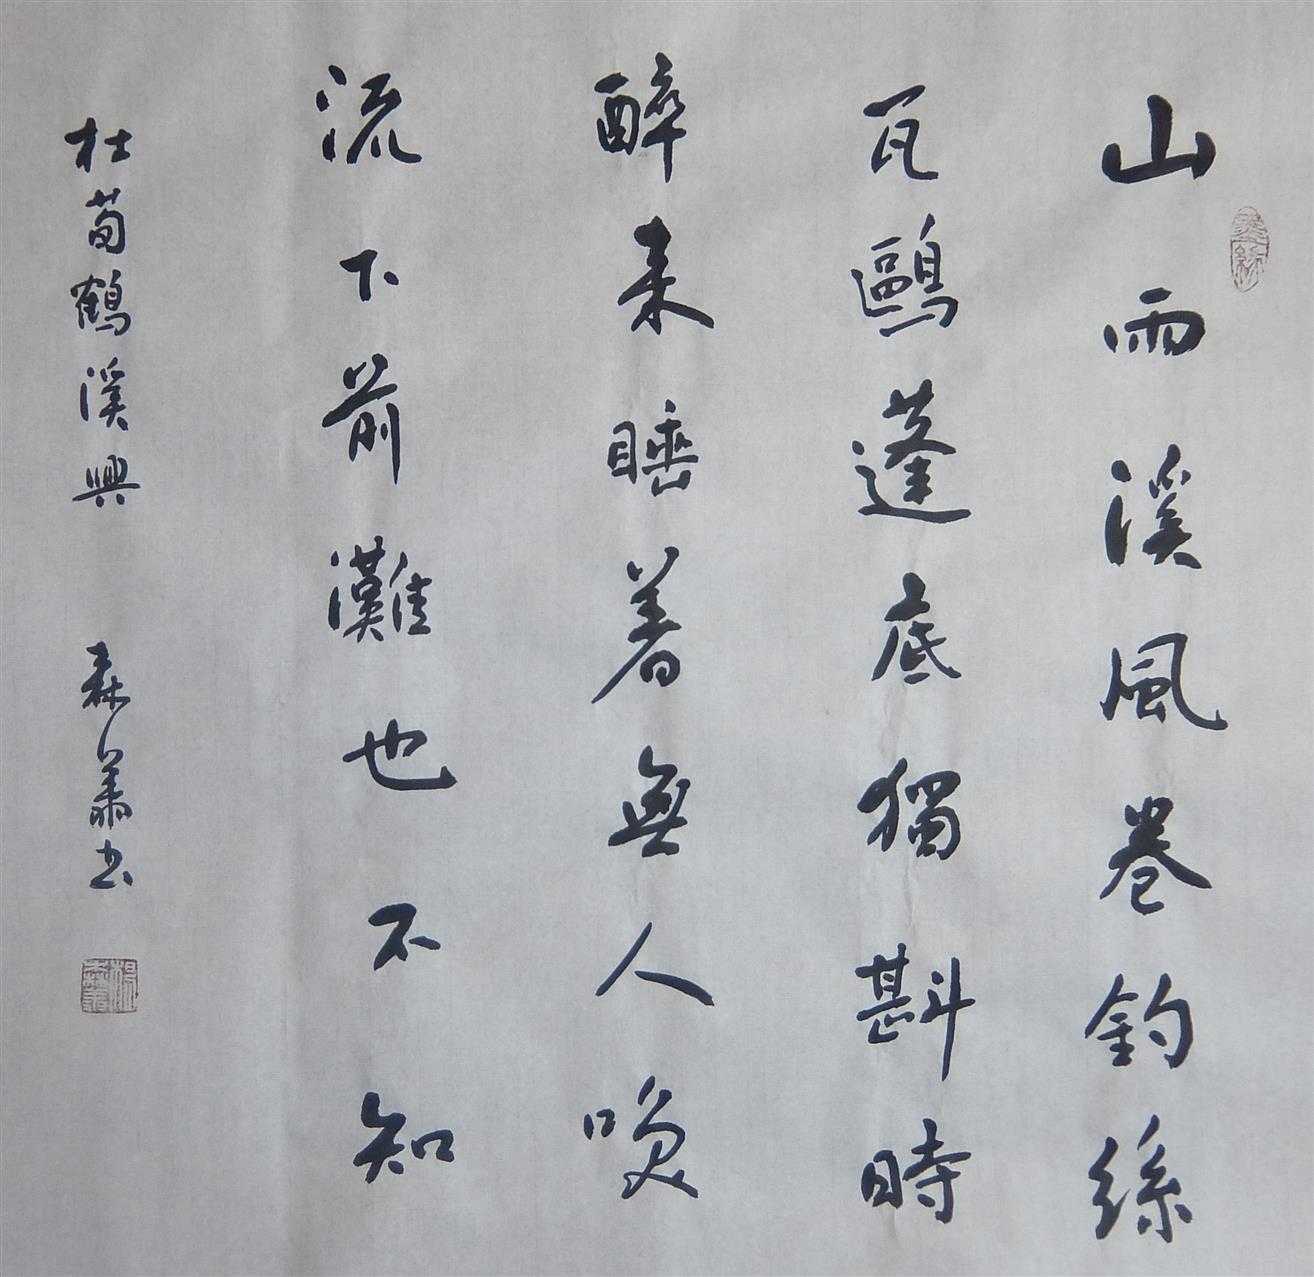 山雨溪風卷釣絲
瓦鷗蓬底獨斟時
醉来睡着無人喚
流下前灘也不知
杜荀鶴溪興
森 书